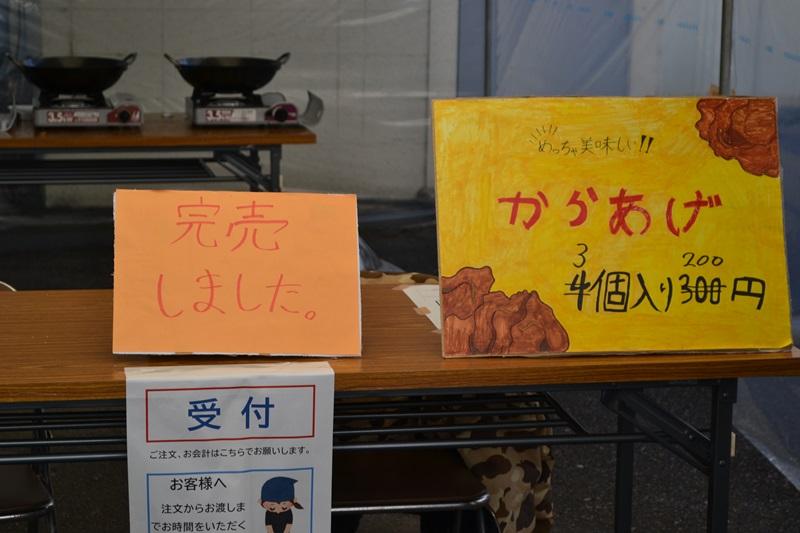 めっちゃ美味しい!!
からあげ
3 200
4個入り300円
完売
しました。
受付
ご注文、お会計はこちらでお願いします。
お客様へ
注文からお渡しま
でお時間をいただく
3.5
3.5